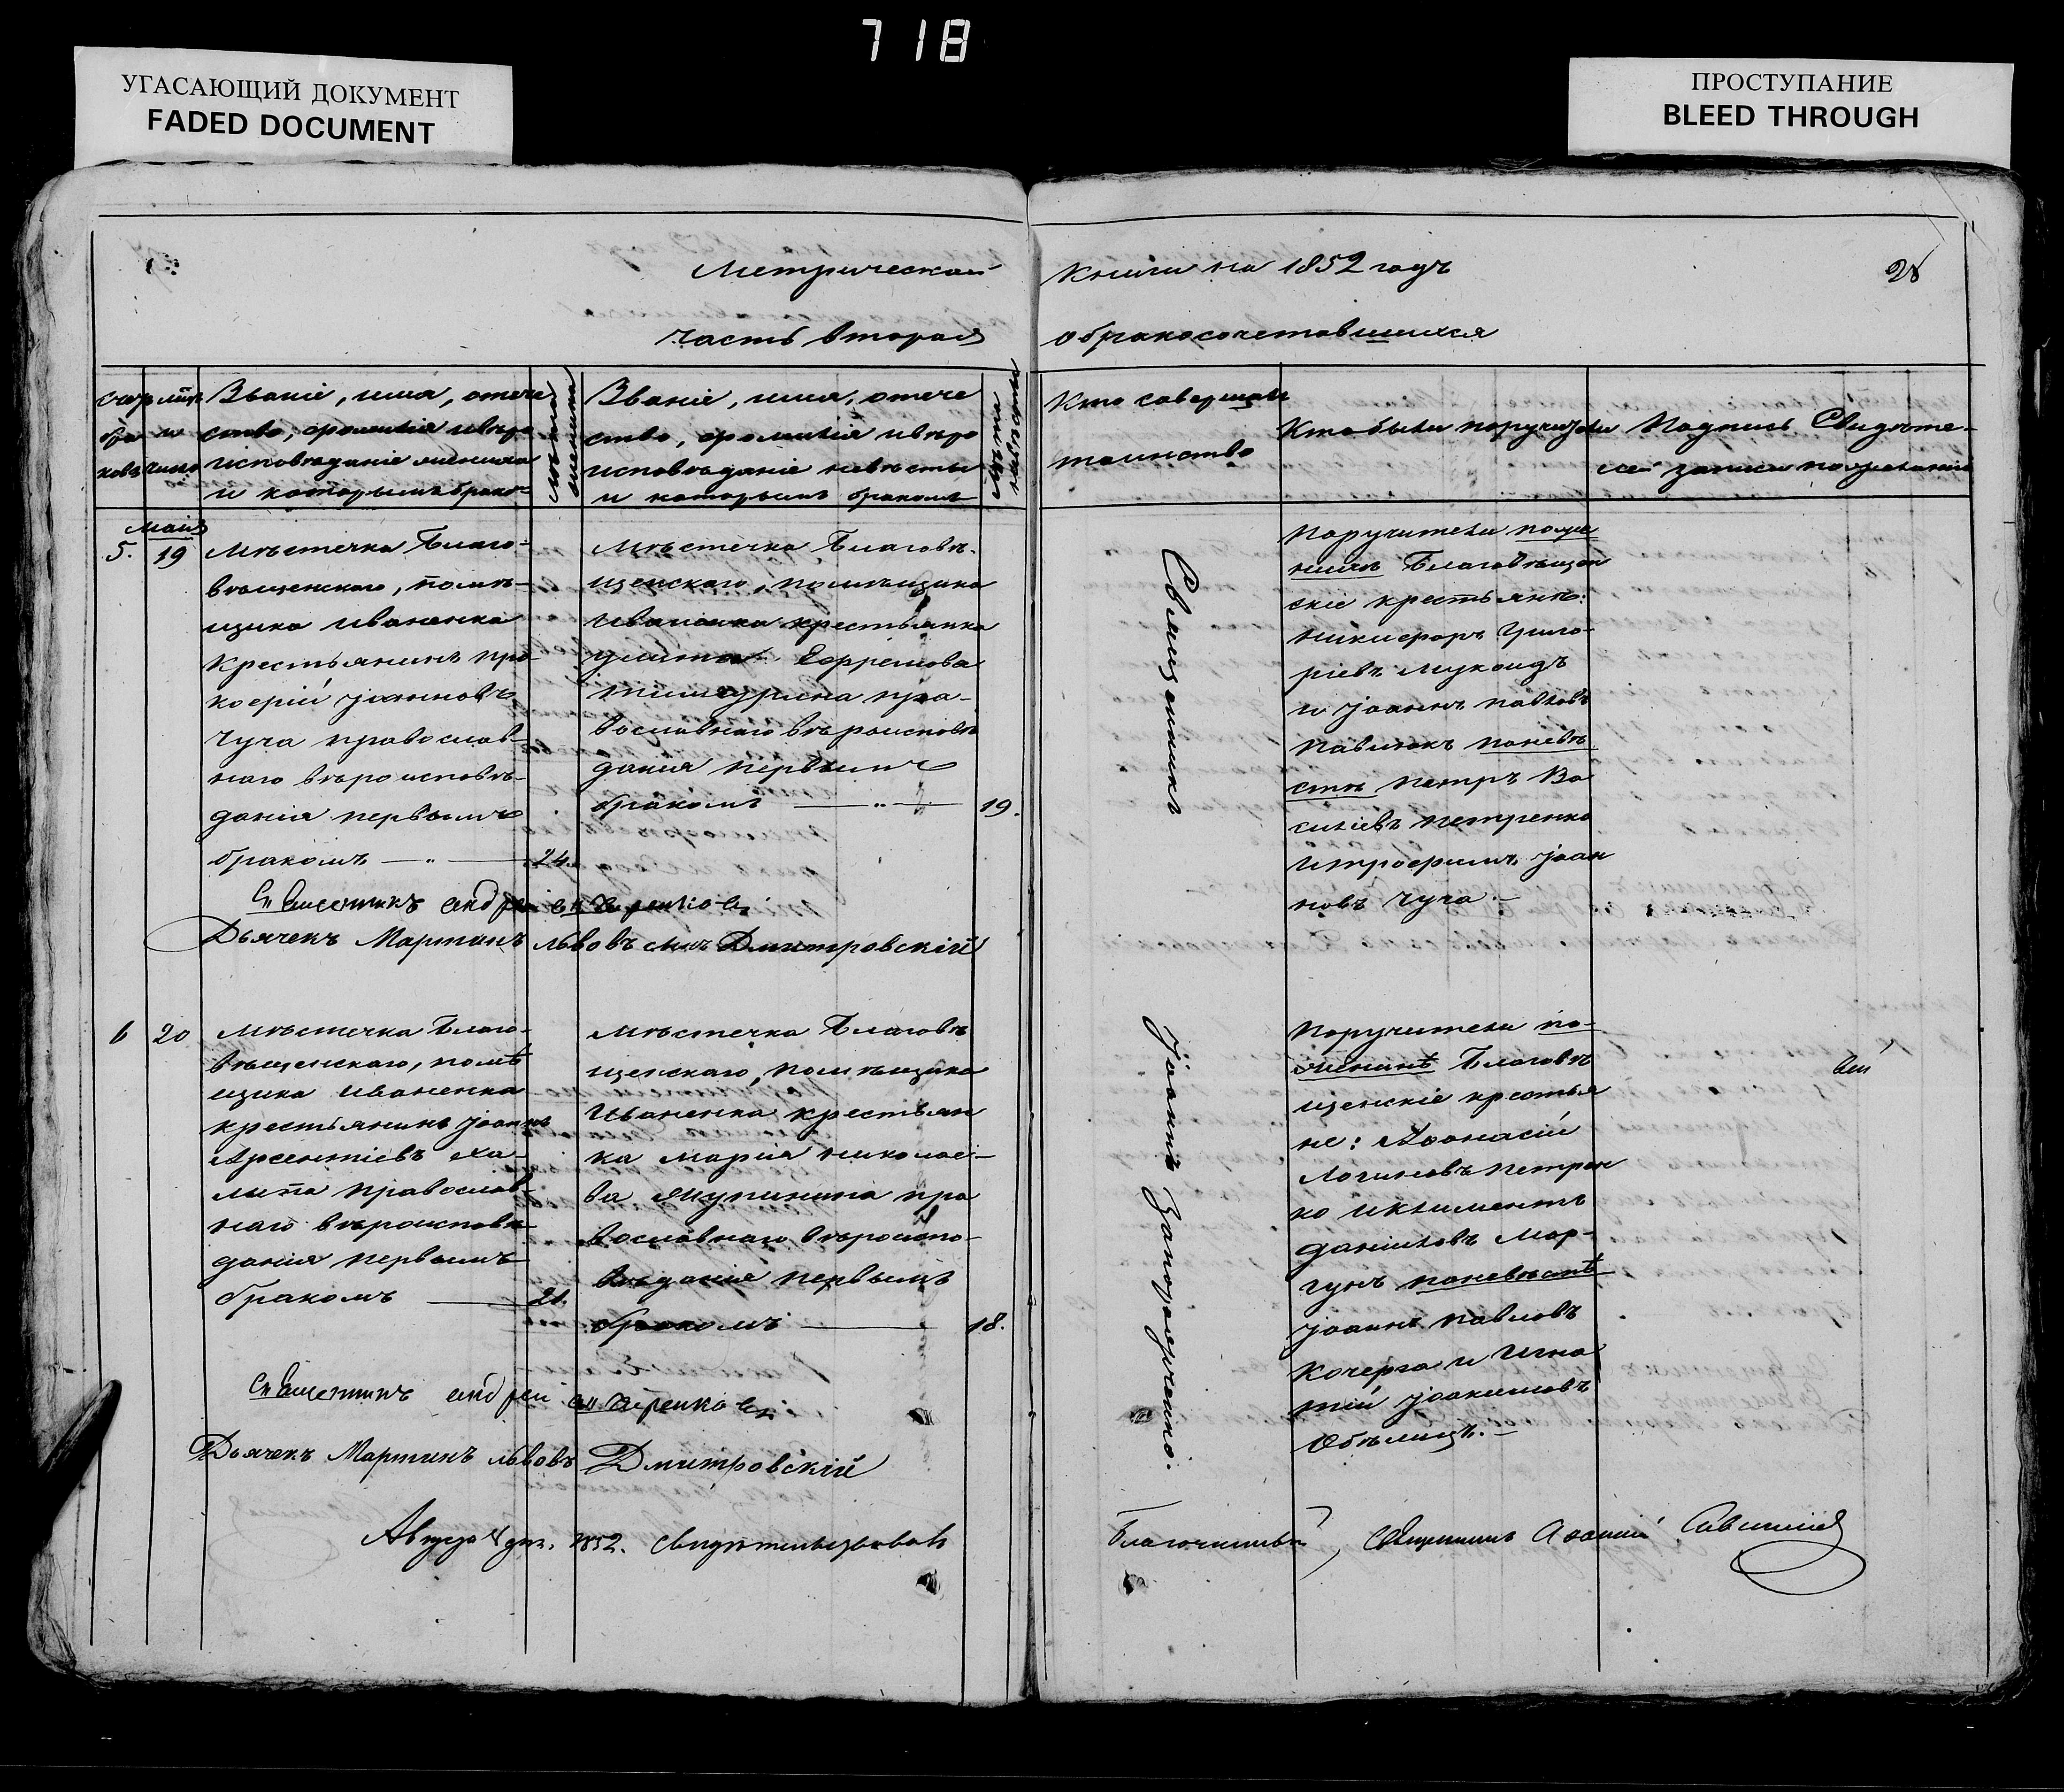 718
УГАСАЮЩИЙ ДОКУМЕНТ
FADED DOCUMENT
ПРОСТУПАНИЕ
BLEED THROUGH
Метрической
часть вторая
книги на 1852 годъ
28
о бракосочетавшихся
Званіе, имя, отече
ство, фамилія и вѣро
исповѣданіе жениха
и которымъ брако
лѣта
жениха
Званіе, имя, отече
ство, фамилія и вѣро
исповѣданіе невѣсты
и которымъ бракомъ
лѣта
невѣсты
Кто совершалъ
таинство
Кто были поручители
Подпись Свидѣте-
лей записи по желанію
Маія
5. 19
Мѣстечка Благо-
вѣщенскаго, помѣ-
щика Иваненка
крестьянинъ Про-
кофій Іоанновъ
Чуча православ-
наго вѣроисповѣ-
данія первымъ
бракомъ — 24.
Мѣстечка Благовѣ-
щенскаго, помѣщика
Иваненка крестьянка
Улита Ефремова
пра-
вославнаго вѣроисповѣ
данія первымъ
бракомъ — 19.
Священникъ
Поручители по же
нихѣ Благовѣщен
скіе крестьяне:
Никифоръ Григо-
ріевъ Мукоидъ
и Іоаннъ Павловъ
Павлюкъ по невѣ
стѣ Петръ Ва
силіевъ Петренко
и Трофимъ Іоан
новъ Чуча.—
Священникъ Андрей
Дьячекъ Мартинъ Львовъ сынъ Дмитровскій
6 20
Мѣстечка Благо-
вѣщенскаго, помѣ
щика Иваненка
крестьянинъ Іоаннъ
Арсентіевъ Ха-
липа православ-
наго вѣроисповѣ
данія первымъ
бракомъ — 21.
Мѣстечка Благовѣ
щенскаго, помѣщика
Иваненка крестьян
ка Марія Николае-
ва пра
вославнаго вѣроиспо-
вѣданія первымъ
бракомъ — 18.
Іоаннъ Запорожченко.
Поручители по-
женихѣ Благовѣ
щенскіе крестья
не: Афонасій
Логиновъ Петрен
ко и Климентъ
Даніиловъ Мор-
гунъ по невѣстѣ
Іоаннъ Павловъ
Кочерга и Игна
тій Іоакимовъ
Священникъ Андрей
Дьячекъ Мартинъ Львовъ Дмитровскій
Августа 4 дня. 1852. Свидѣтельствовалъ
Благочинный, Священникъ